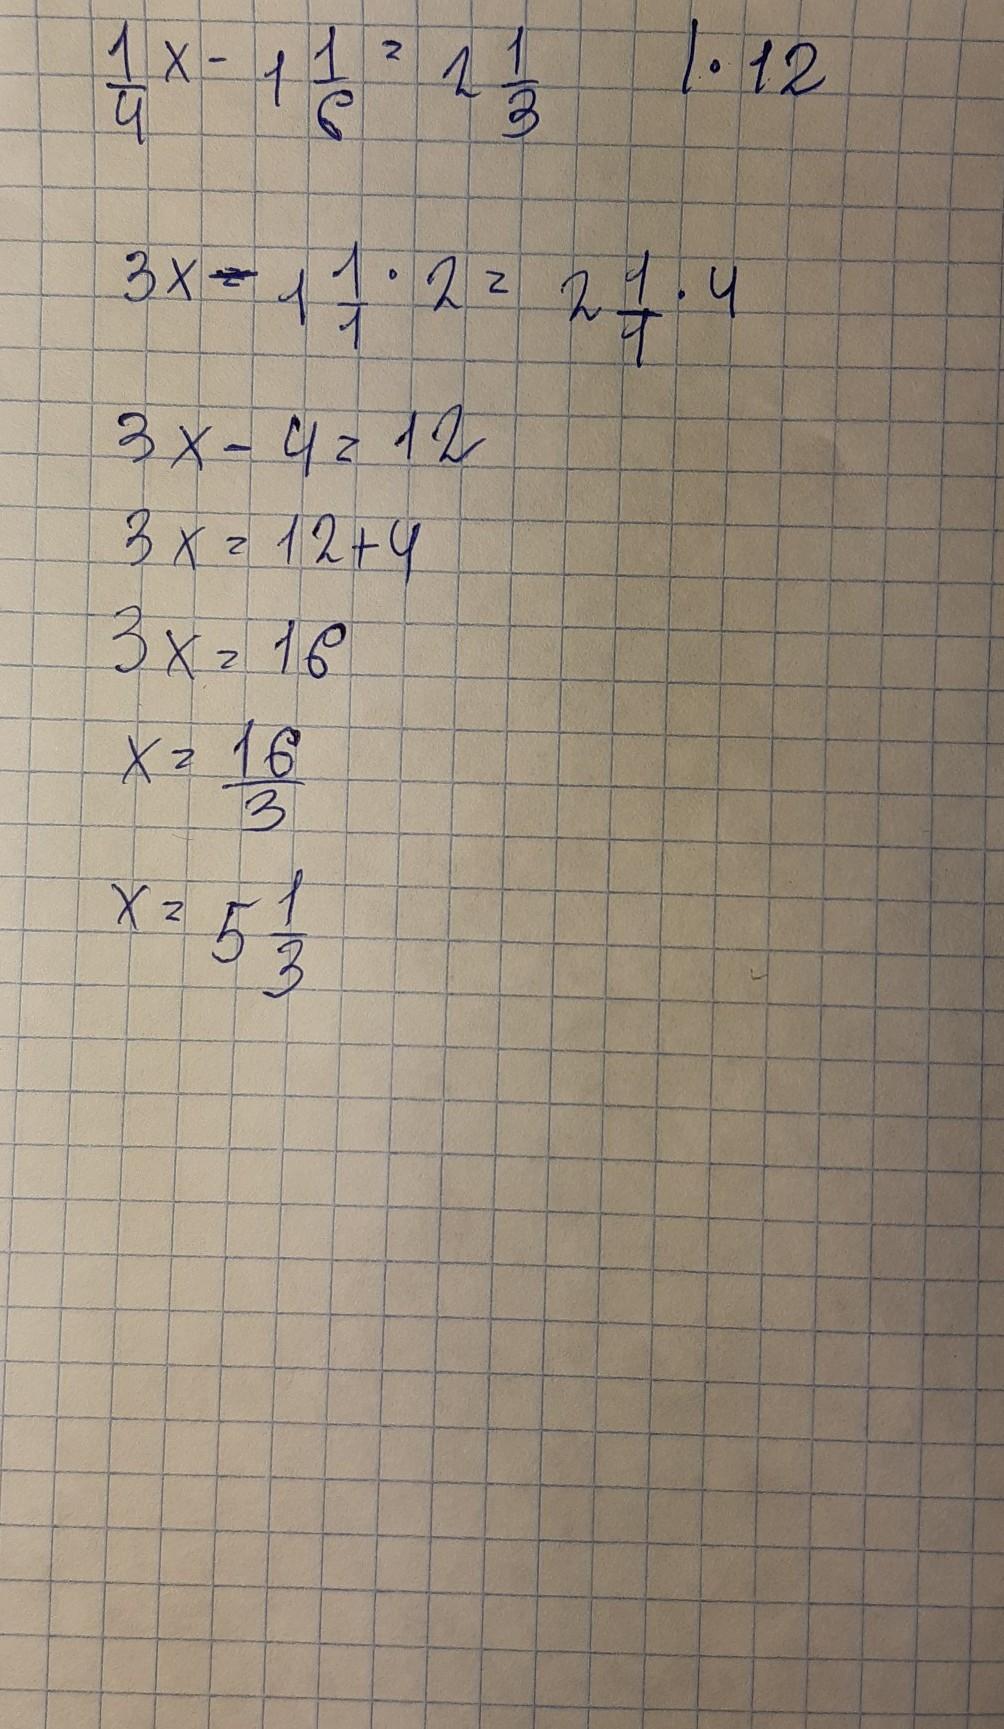 1/4 x - 1 1/6 = 2 1/3 | · 12
3x - 1 1/1 · 2 = 2 1/1 · 4
3x - 4 = 12
3x = 12 + 4
3x = 16
x = 16/3
x = 5 1/3